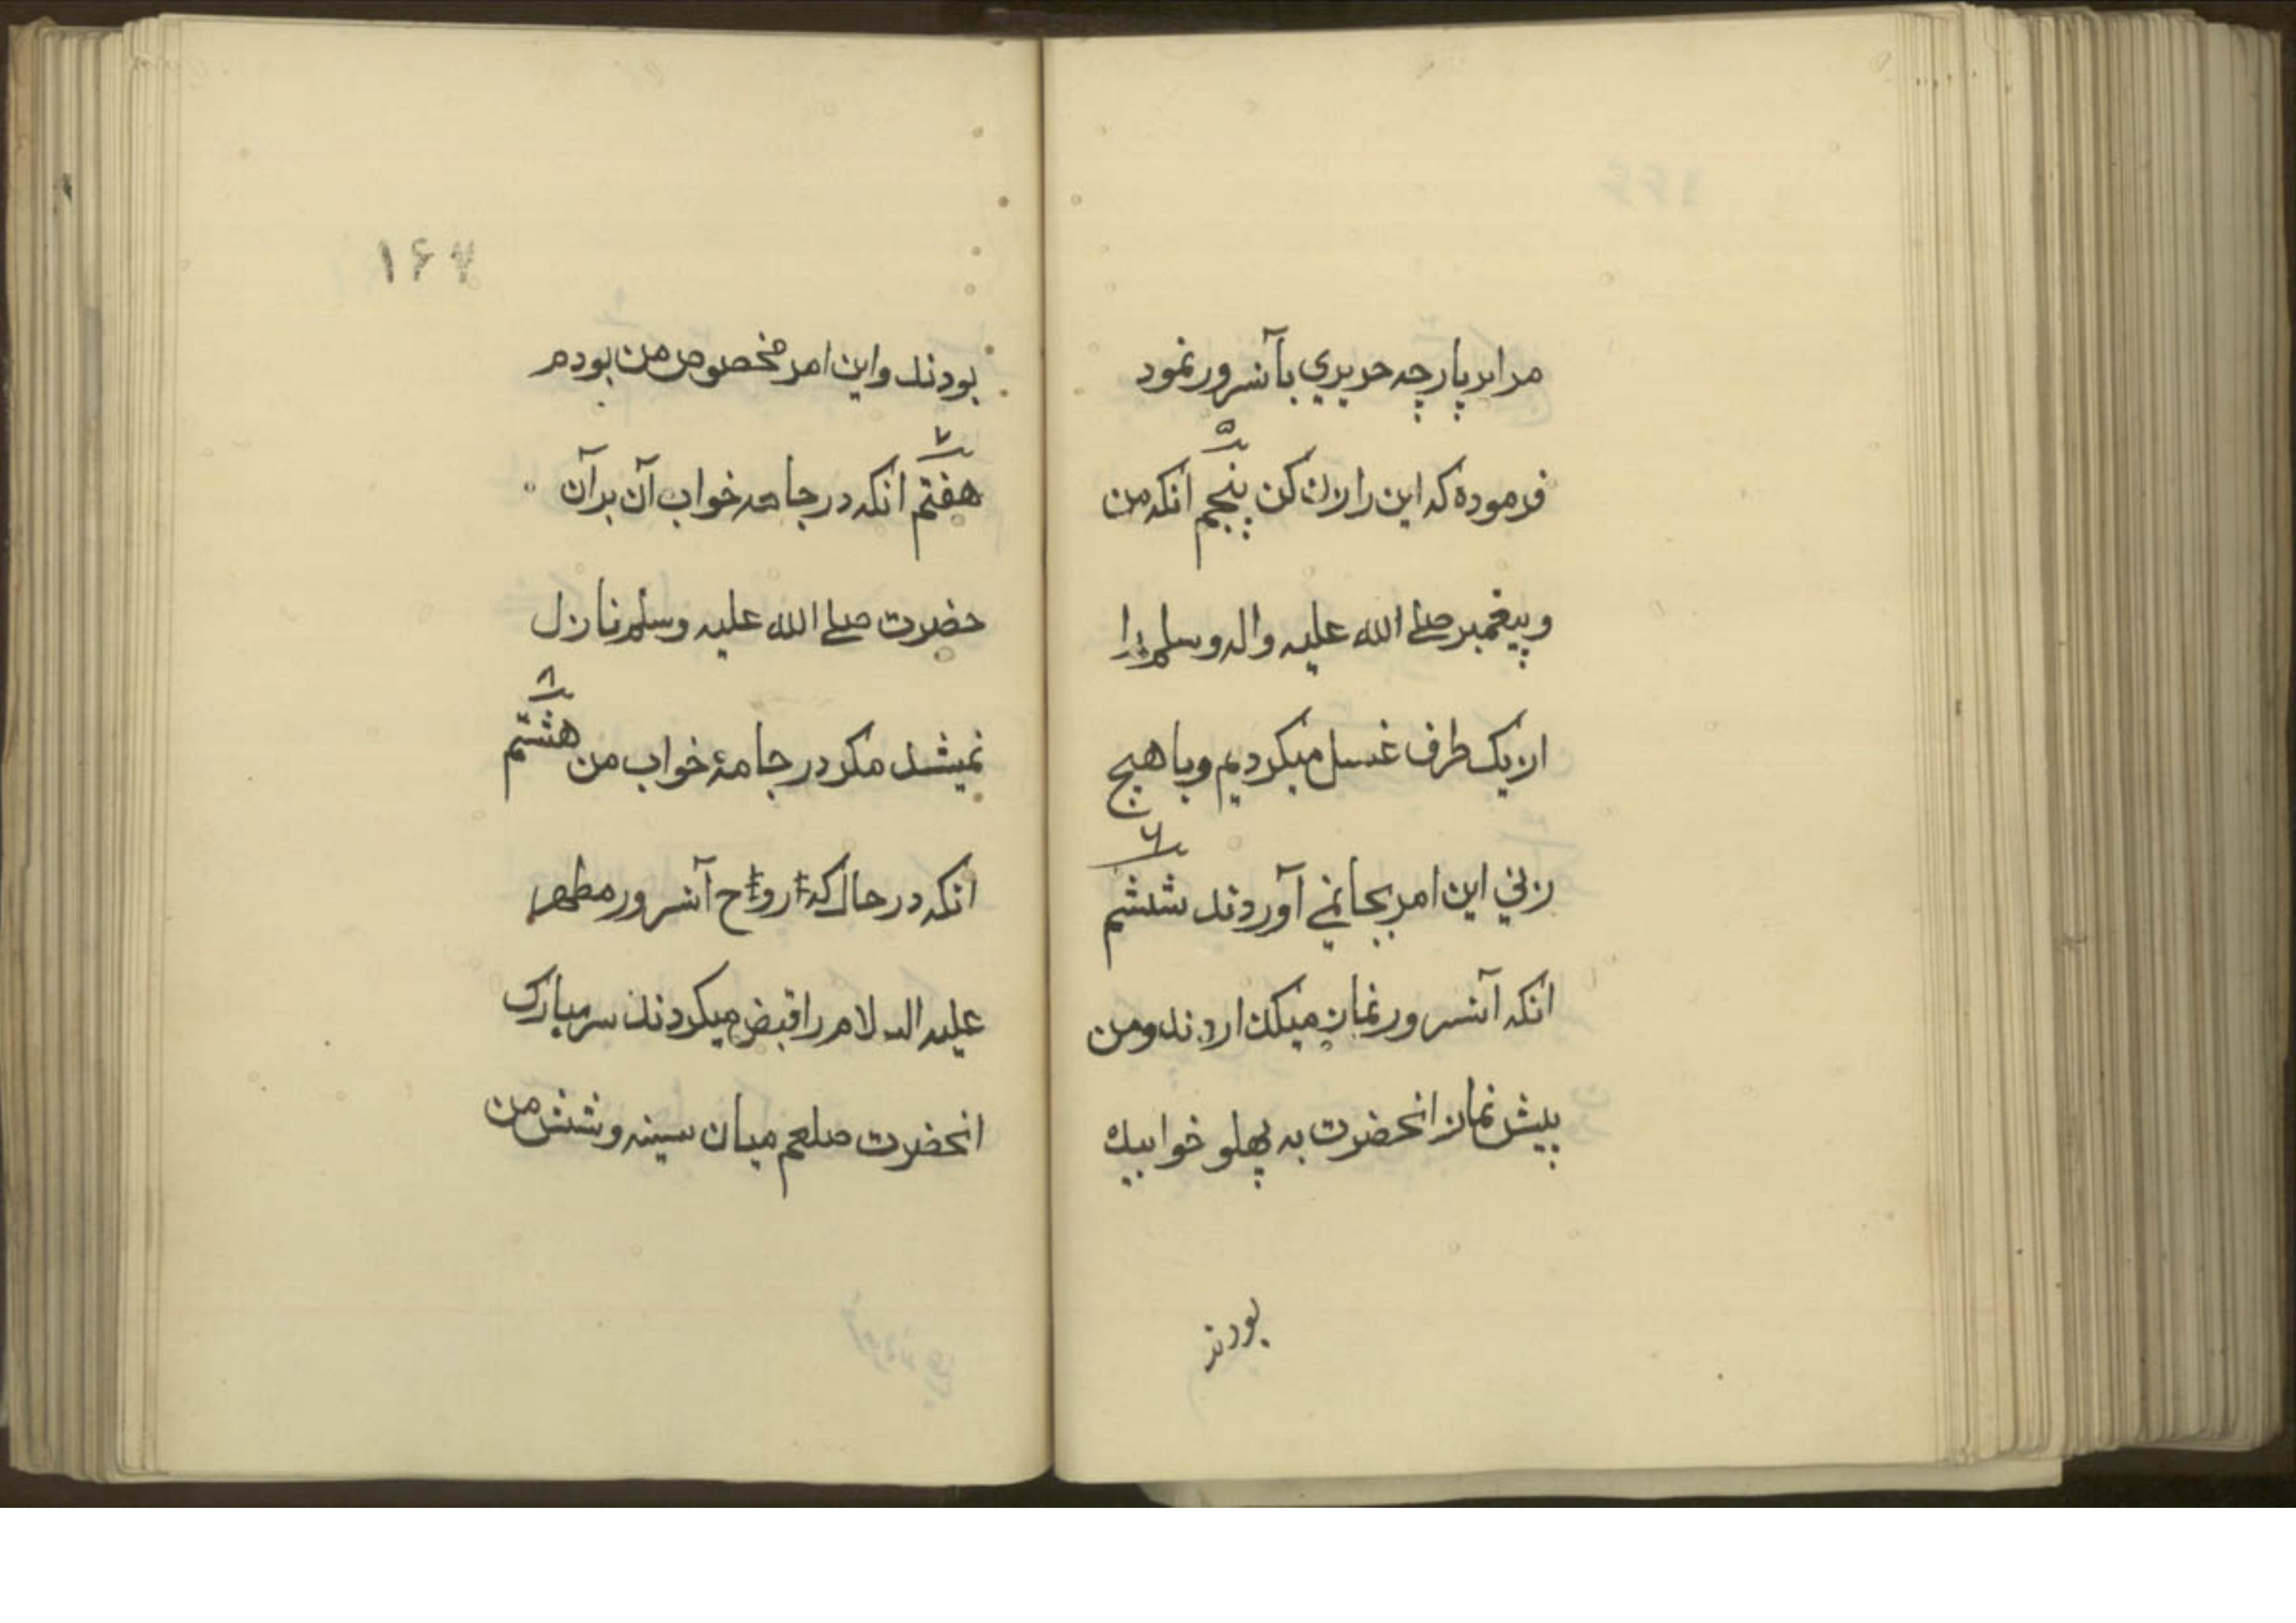 مرا بر پارچه حریری بآنسرور نمود
۵
فرموده که این را زن کن پنجم انکه من
و پیغمبر صلے الله علیه واله وسلم را
از یک طرف غسل میکردیم و با هیچ
۶
زنی این امر بجا نمے آوردند ششم
انکه آنسرور نماز میگذاردند و من
پیش نماز انحضرت به پهلو خوابیده
بودند
۱۶۷
بودند و این امر مخصوص من بودم
۷
هفتم انکه در جامه خواب آن بر آن
حضرت صلے الله علیه وسلم نازل
۸
نمیشد مکر در جامهٔ خواب من هشتم
انکه در حال که ارواح آنسرور مطهر
علیه السلام را قبض میکردند سر مبارک
انحضرت صلعم میان سینه و شش من